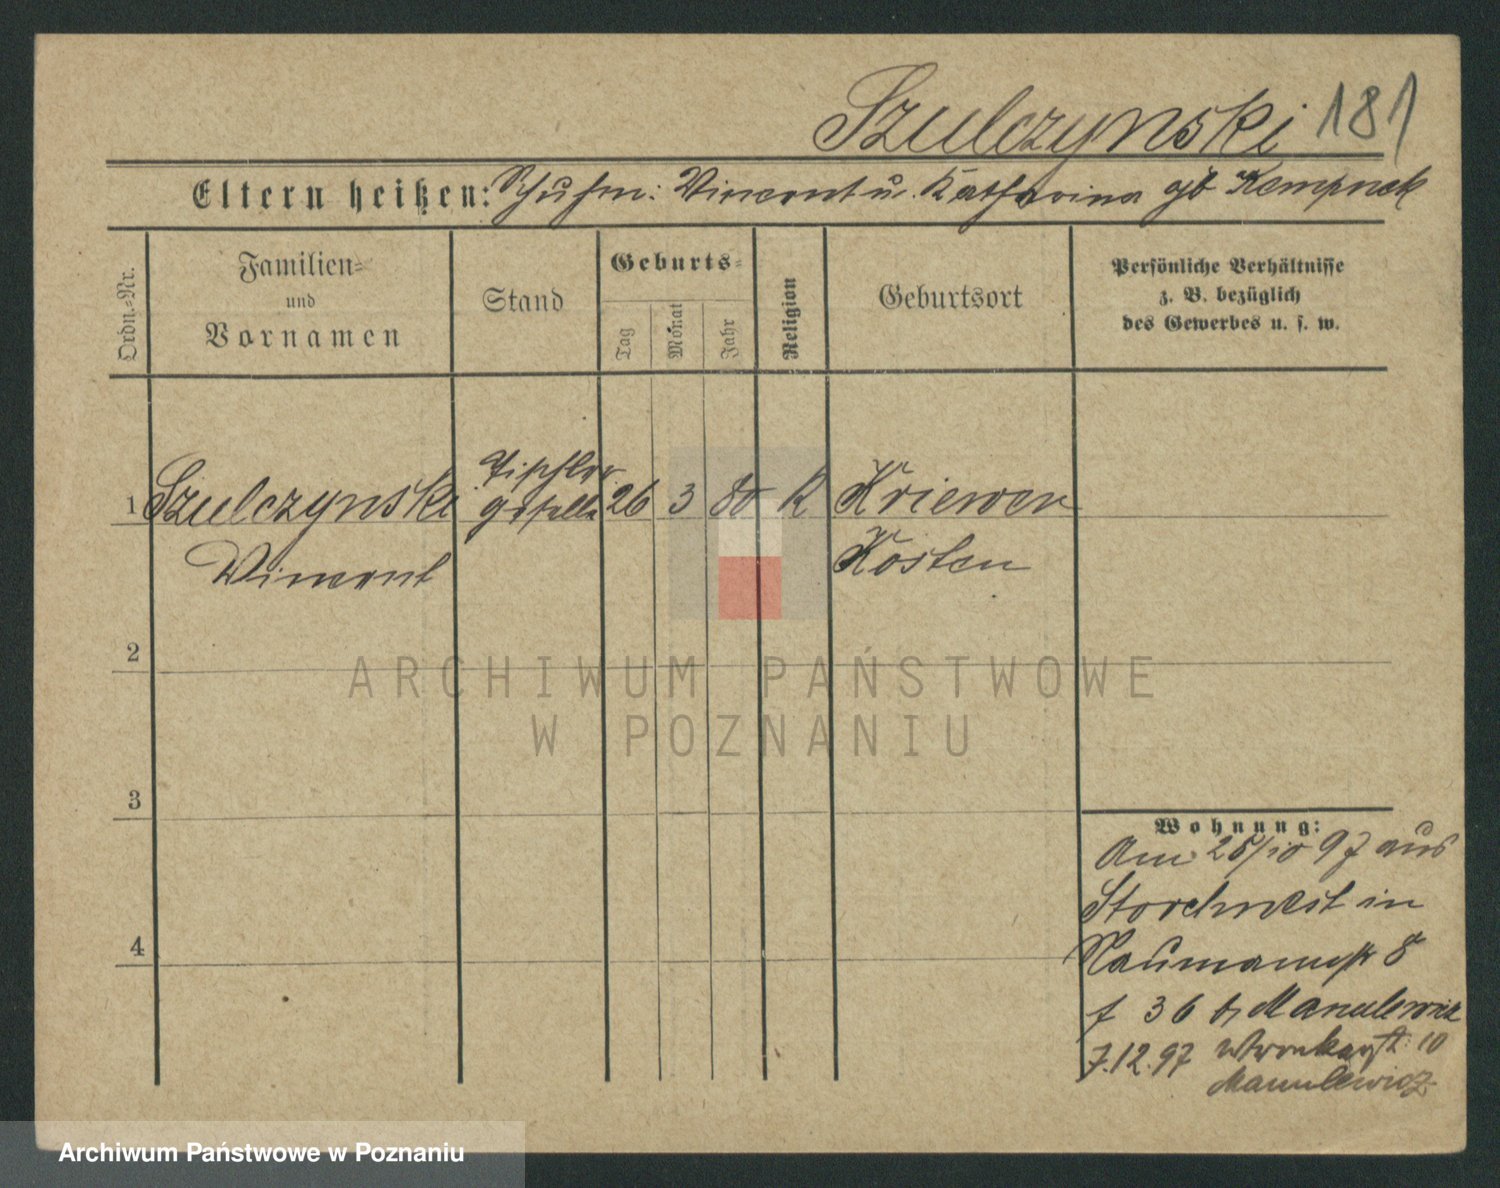 Szulczynski 181
Eltern heißen: Schuhm: Vincent u. Katharina gb Kempnak
Ordn.=Nr.
Familien=
und
Vornamen
Stand
Geburts=
Tag
Monat
Jahr
Religion
Geburtsort
Persönliche Verhältnisse
z. B. bezüglich
des Gewerbes u. s. w.
1 Szulczynski Tischler 26 3 80 K Kriewen
Vincent geselle Kosten
2
ARCHIWUM PAŃSTWOWE
W POZNANIU
3
4
Wohnung:
Am 25/10 97 aus
Storchnest in
Naumannstr 8
f 36 b, Manulewicz
7.12.97 Wronkerstr. 10
Manulewicz
Archiwum Państwowe w Poznaniu